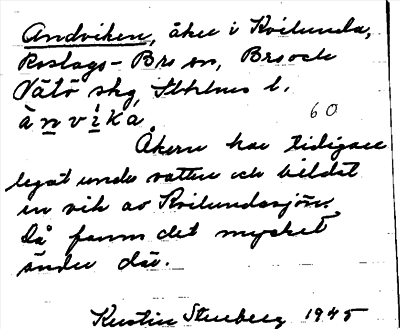 Andviken, åker i Kvilunda,
Roslags-Bro sn, Bro och
Vätö skg, Sthlms l.
ànvika
60
Åkern har tidigare
legat under vatten och bildat
en vik av Kvilundasjön.
Då fanns det mycket
änder där.
Kerstin Strenberg 1945